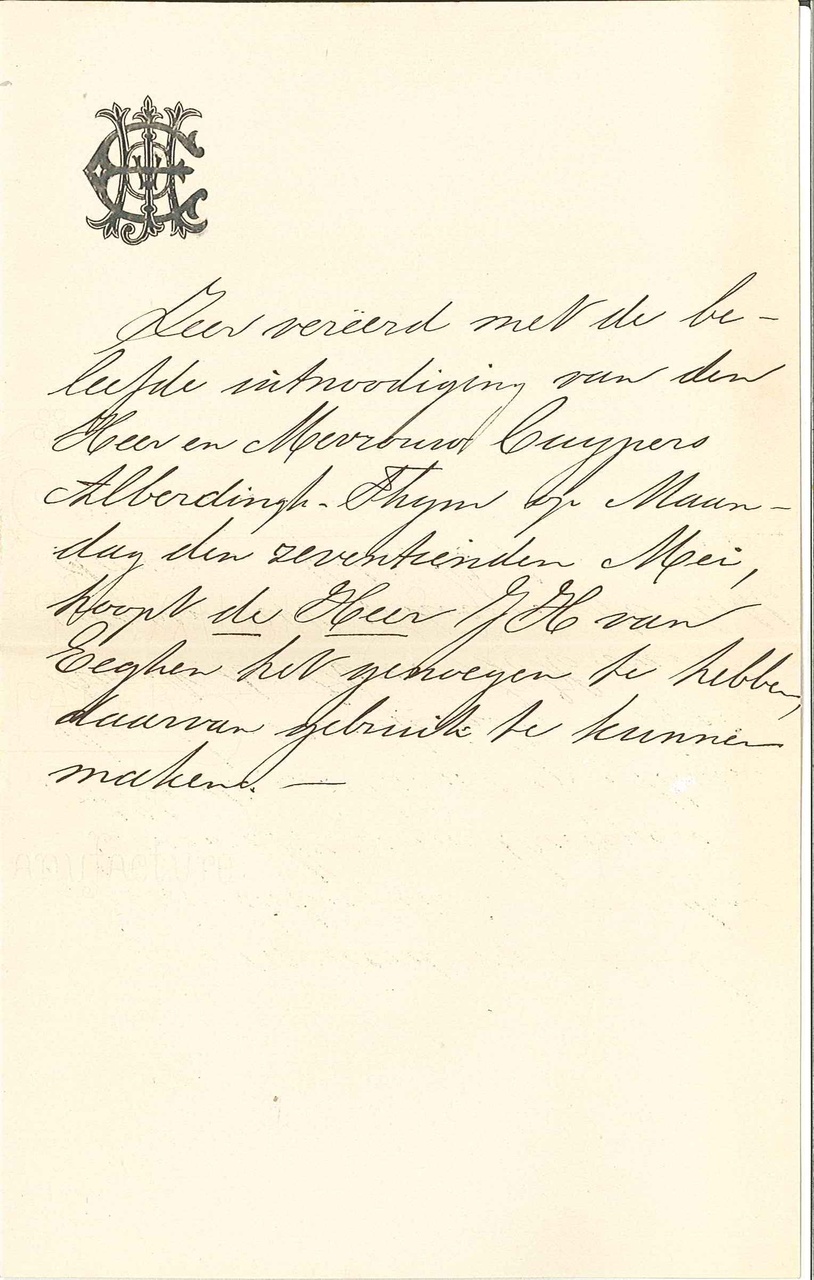 Zeer vereerd met de be-
leefde uitnoodiging van den
Heer en Mevrouw Cuypers
Alberdingk-Thym op Maan-
dag den zeventienden Mei,
hoopt de Heer J H van
Eeghen het genoegen te hebben,
daarvan gebruik te kunnen
maken. —